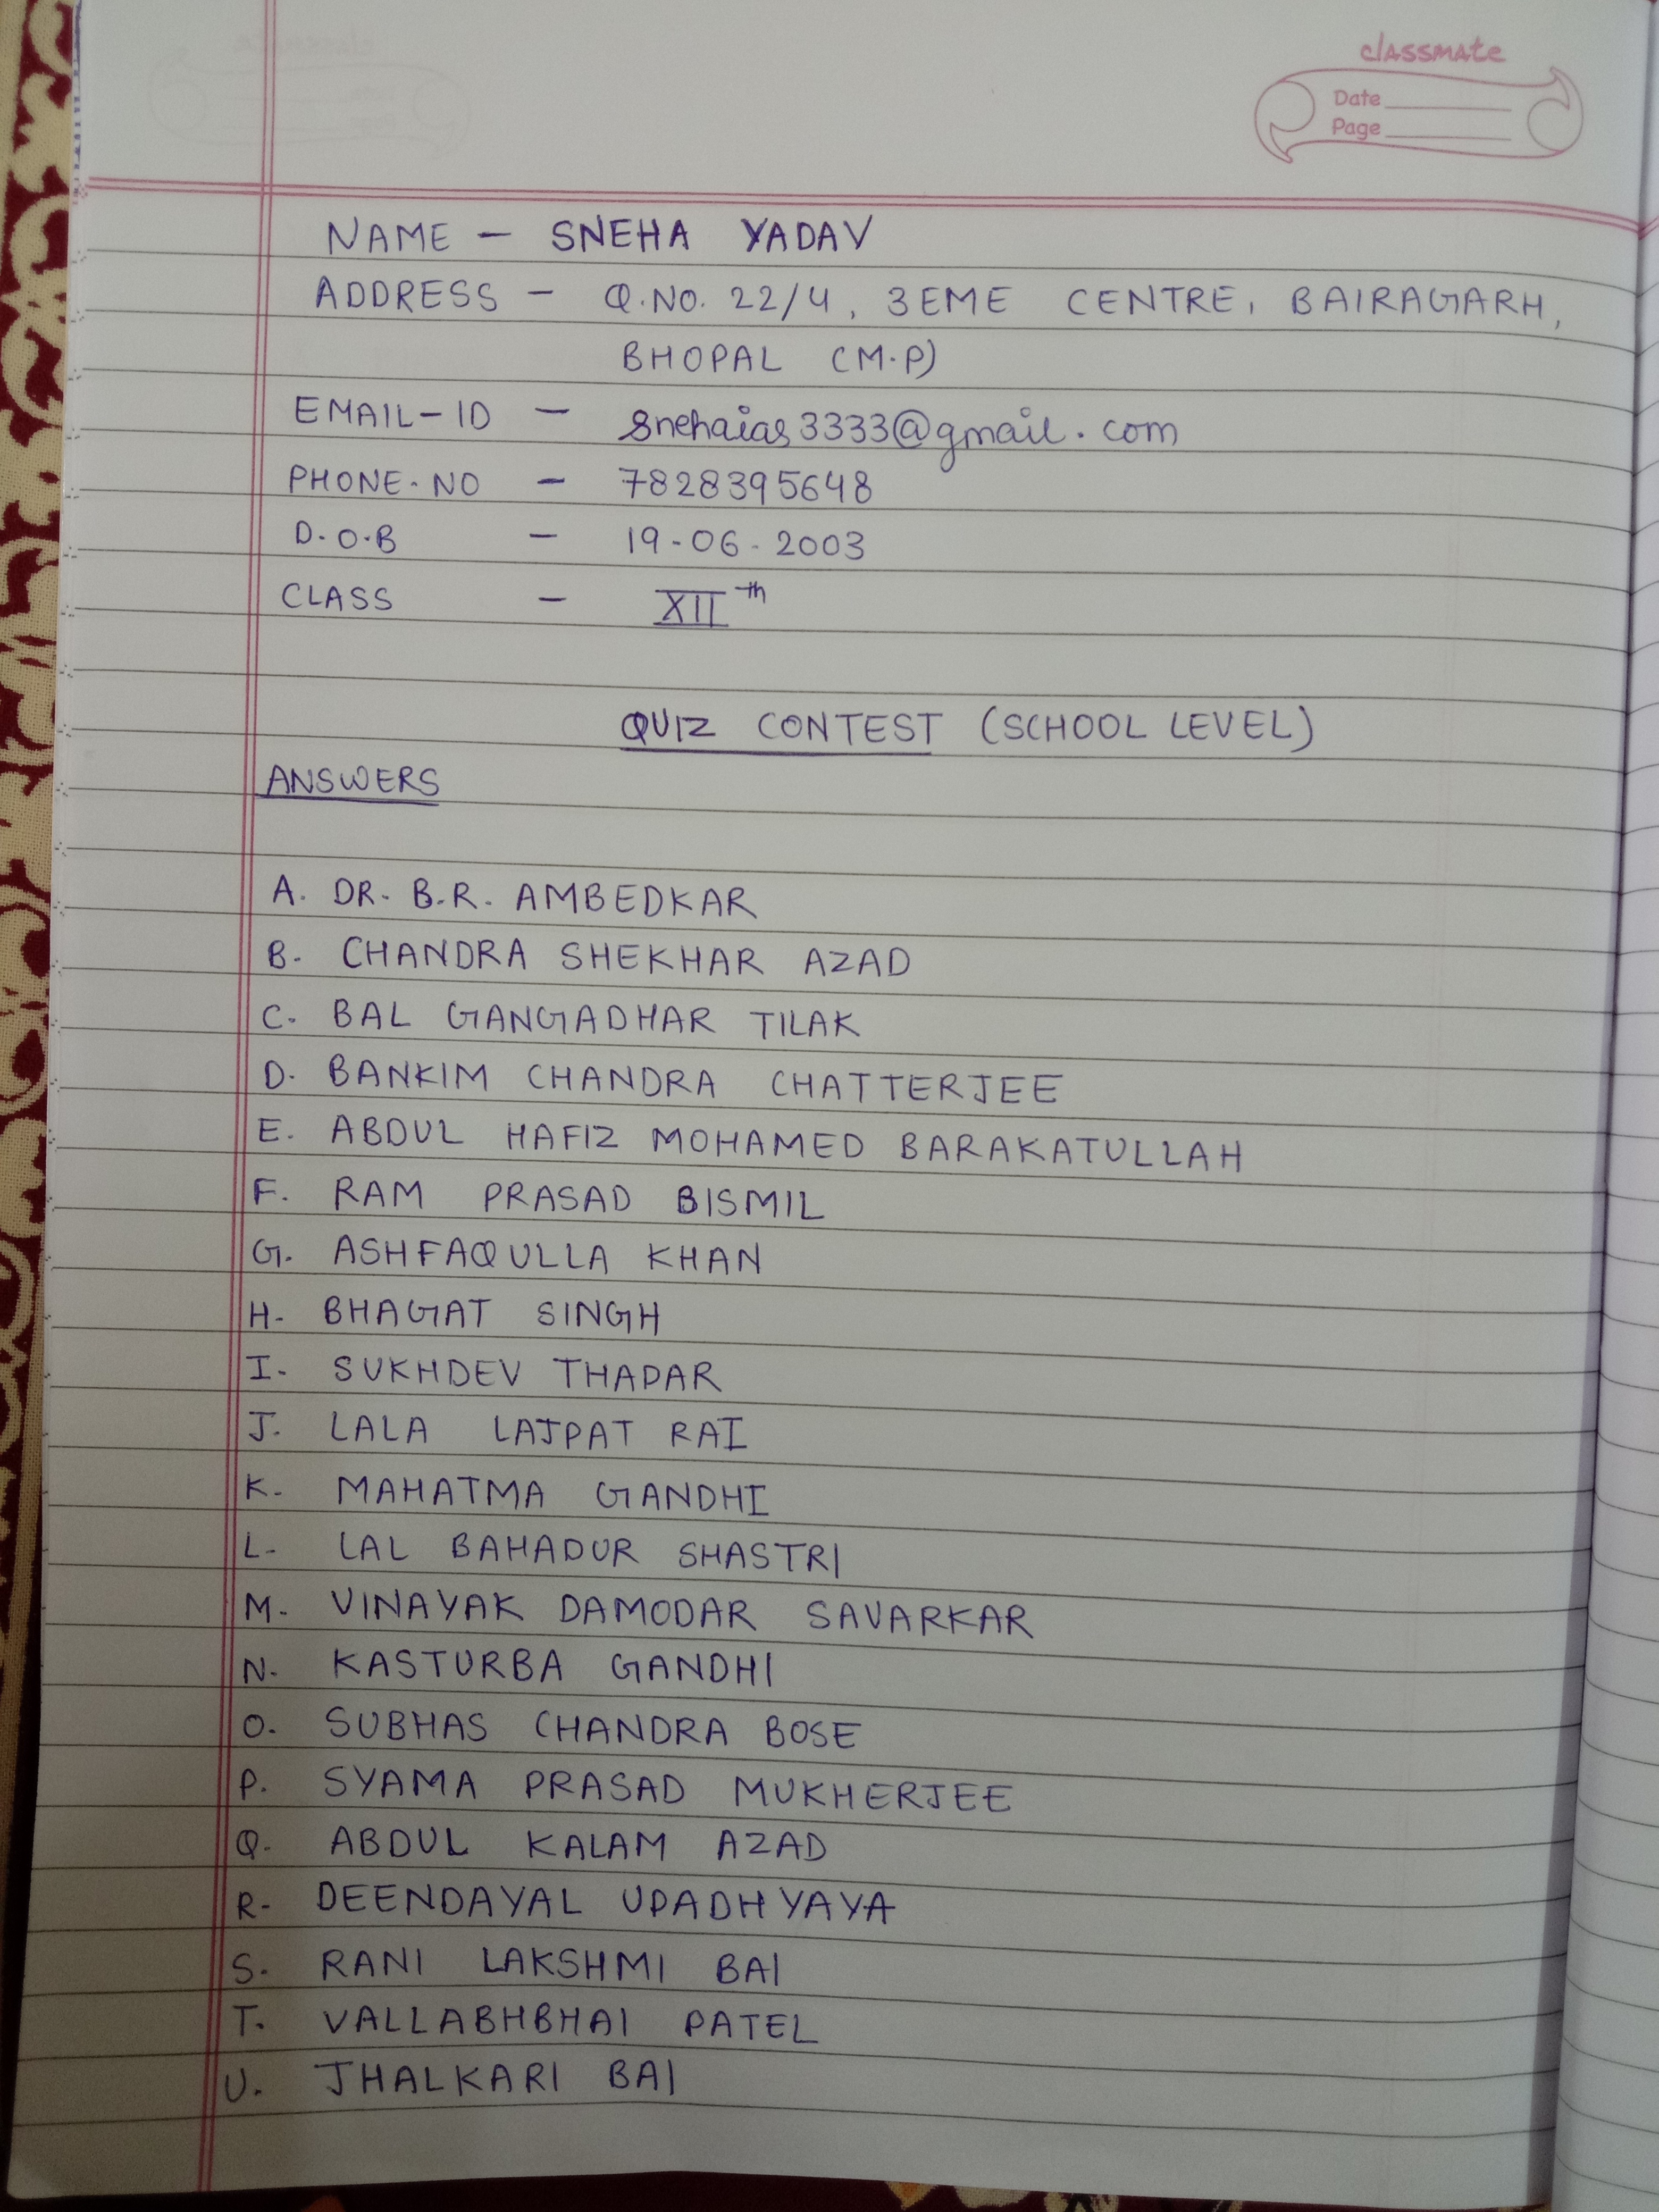 classmate
Date
Page
NAME - SNEHA YADAV
ADDRESS - Q.NO. 22/4, 3EME CENTRE, BAIRAGARH,
BHOPAL (M.P)
EMAIL-ID - snehaias3333@gmail.com
PHONE-NO - 7828395648
D.O.B - 19-06-2003
CLASS - XII th
QUIZ CONTEST (SCHOOL LEVEL)
ANSWERS
A. DR. B.R. AMBEDKAR
B. CHANDRA SHEKHAR AZAD
C. BAL GANGADHAR TILAK
D. BANKIM CHANDRA CHATTERJEE
E. ABDUL HAFIZ MOHAMED BARAKATULLAH
F. RAM PRASAD BISMIL
G. ASHFAQULLA KHAN
H. BHAGAT SINGH
I. SUKHDEV THAPAR
J. LALA LAJPAT RAI
K. MAHATMA GANDHI
L. LAL BAHADUR SHASTRI
M. VINAYAK DAMODAR SAVARKAR
N. KASTURBA GANDHI
O. SUBHAS CHANDRA BOSE
P. SYAMA PRASAD MUKHERJEE
Q. ABDUL KALAM AZAD
R. DEENDAYAL UPADHYAYA
S. RANI LAKSHMI BAI
T. VALLABHBHAI PATEL
U. JHALKARI BAI